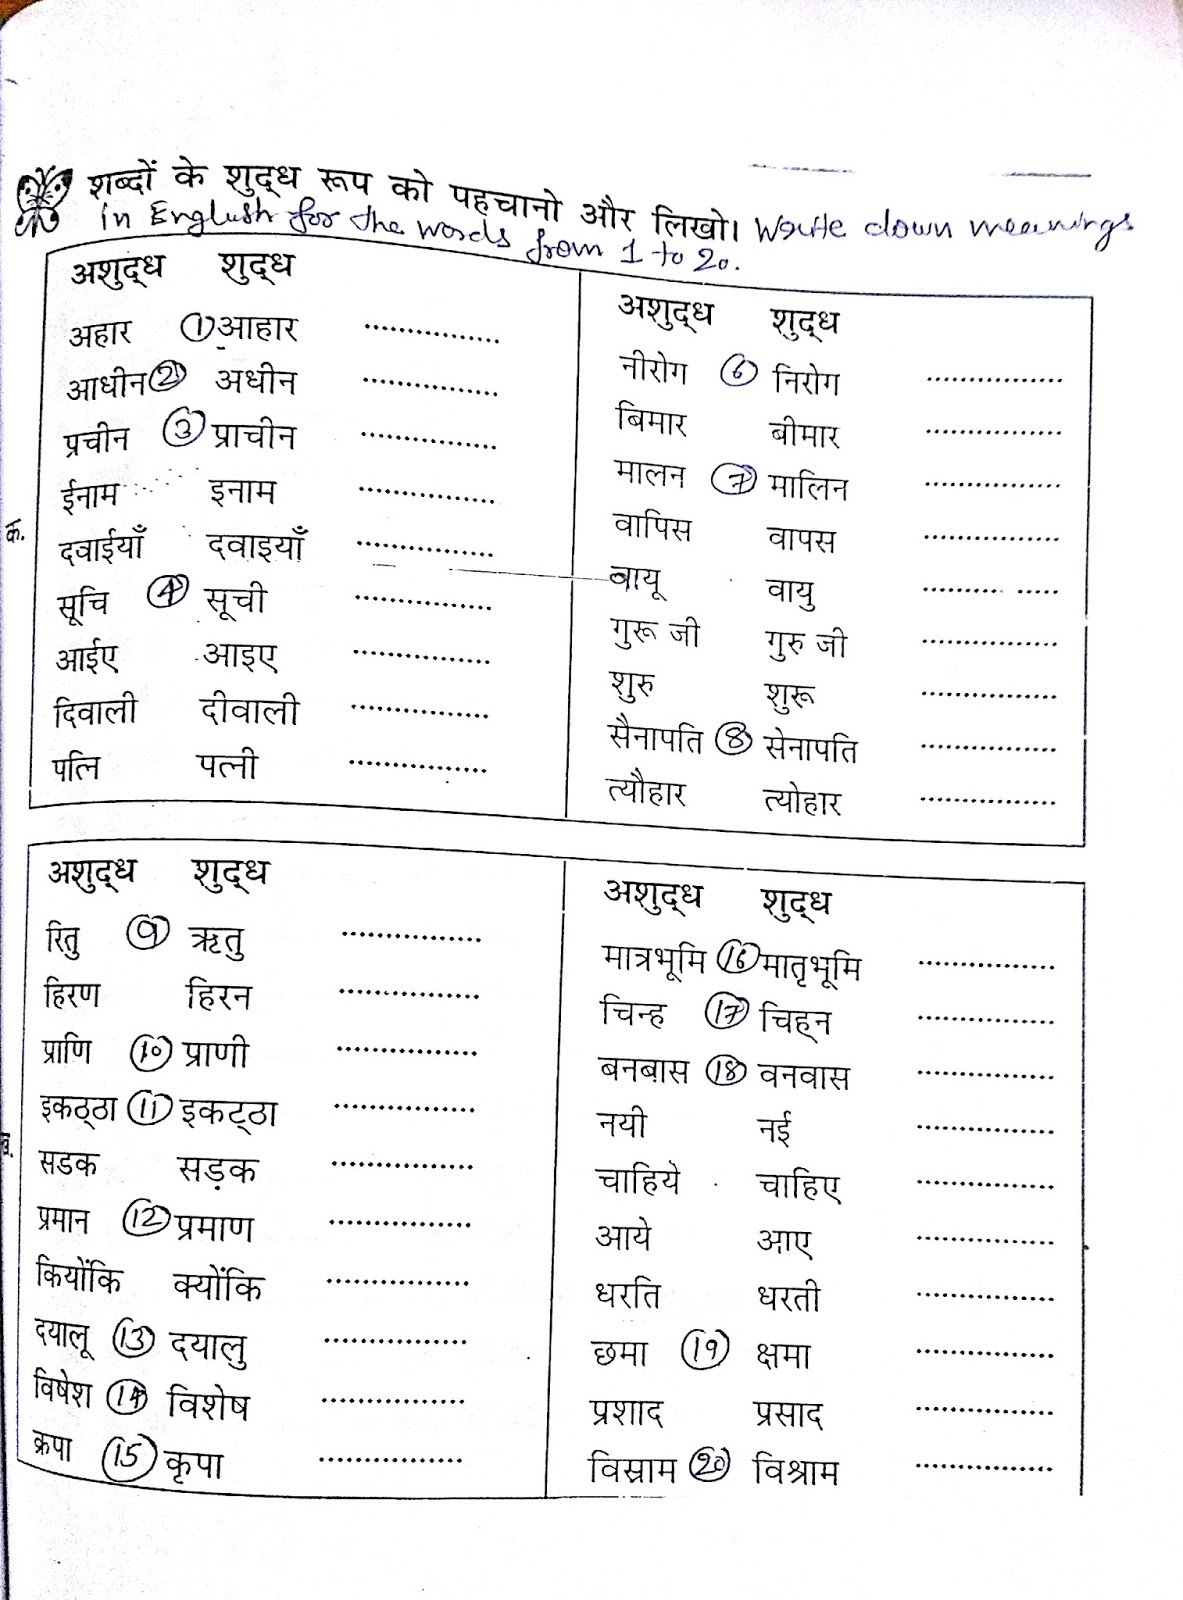 शब्दों के शुद्ध रूप को पहचानो और लिखो। Write down meanings
in English for the words from 1 to 20.
अशुद्ध शुद्ध
अहार ① आहार ..................
आधीन ② अधीन ..................
प्रचीन ③ प्राचीन ..................
ईनाम इनाम ..................
क.
दवाईयाँ दवाइयाँ ..................
सूचि ④ सूची ..................
आईए आइए ..................
दिवाली दीवाली ..................
पत्नि पत्नी ..................
अशुद्ध शुद्ध
नीरोग ⑥ निरोग ..................
बिमार बीमार ..................
मालन ⑦ मालिन ..................
वापिस वापस ..................
बायू वायु ..................
गुरू जी गुरु जी ..................
शुरु शुरू ..................
सैनापति ⑧ सेनापति ..................
त्यौहार त्योहार ..................
अशुद्ध शुद्ध
रितु ⑨ ऋतु ..................
हिरण हिरन ..................
प्राणि ⑩ प्राणी ..................
इकठ्ठा ⑪ इकट्ठा ..................
ख.
सडक सड़क ..................
प्रमान ⑫ प्रमाण ..................
कियोंकि क्योंकि ..................
दयालू ⑬ दयालु ..................
विषेश ⑭ विशेष ..................
क्रपा ⑮ कृपा ..................
अशुद्ध शुद्ध
मात्रभूमि ⑯ मातृभूमि ..................
चिन्ह ⑰ चिह्न ..................
बनबास ⑱ वनवास ..................
नयी नई ..................
चाहिये चाहिए ..................
आये आए ..................
धरति धरती ..................
छमा ⑲ क्षमा ..................
प्रशाद प्रसाद ..................
विस्राम ⑳ विश्राम ..................